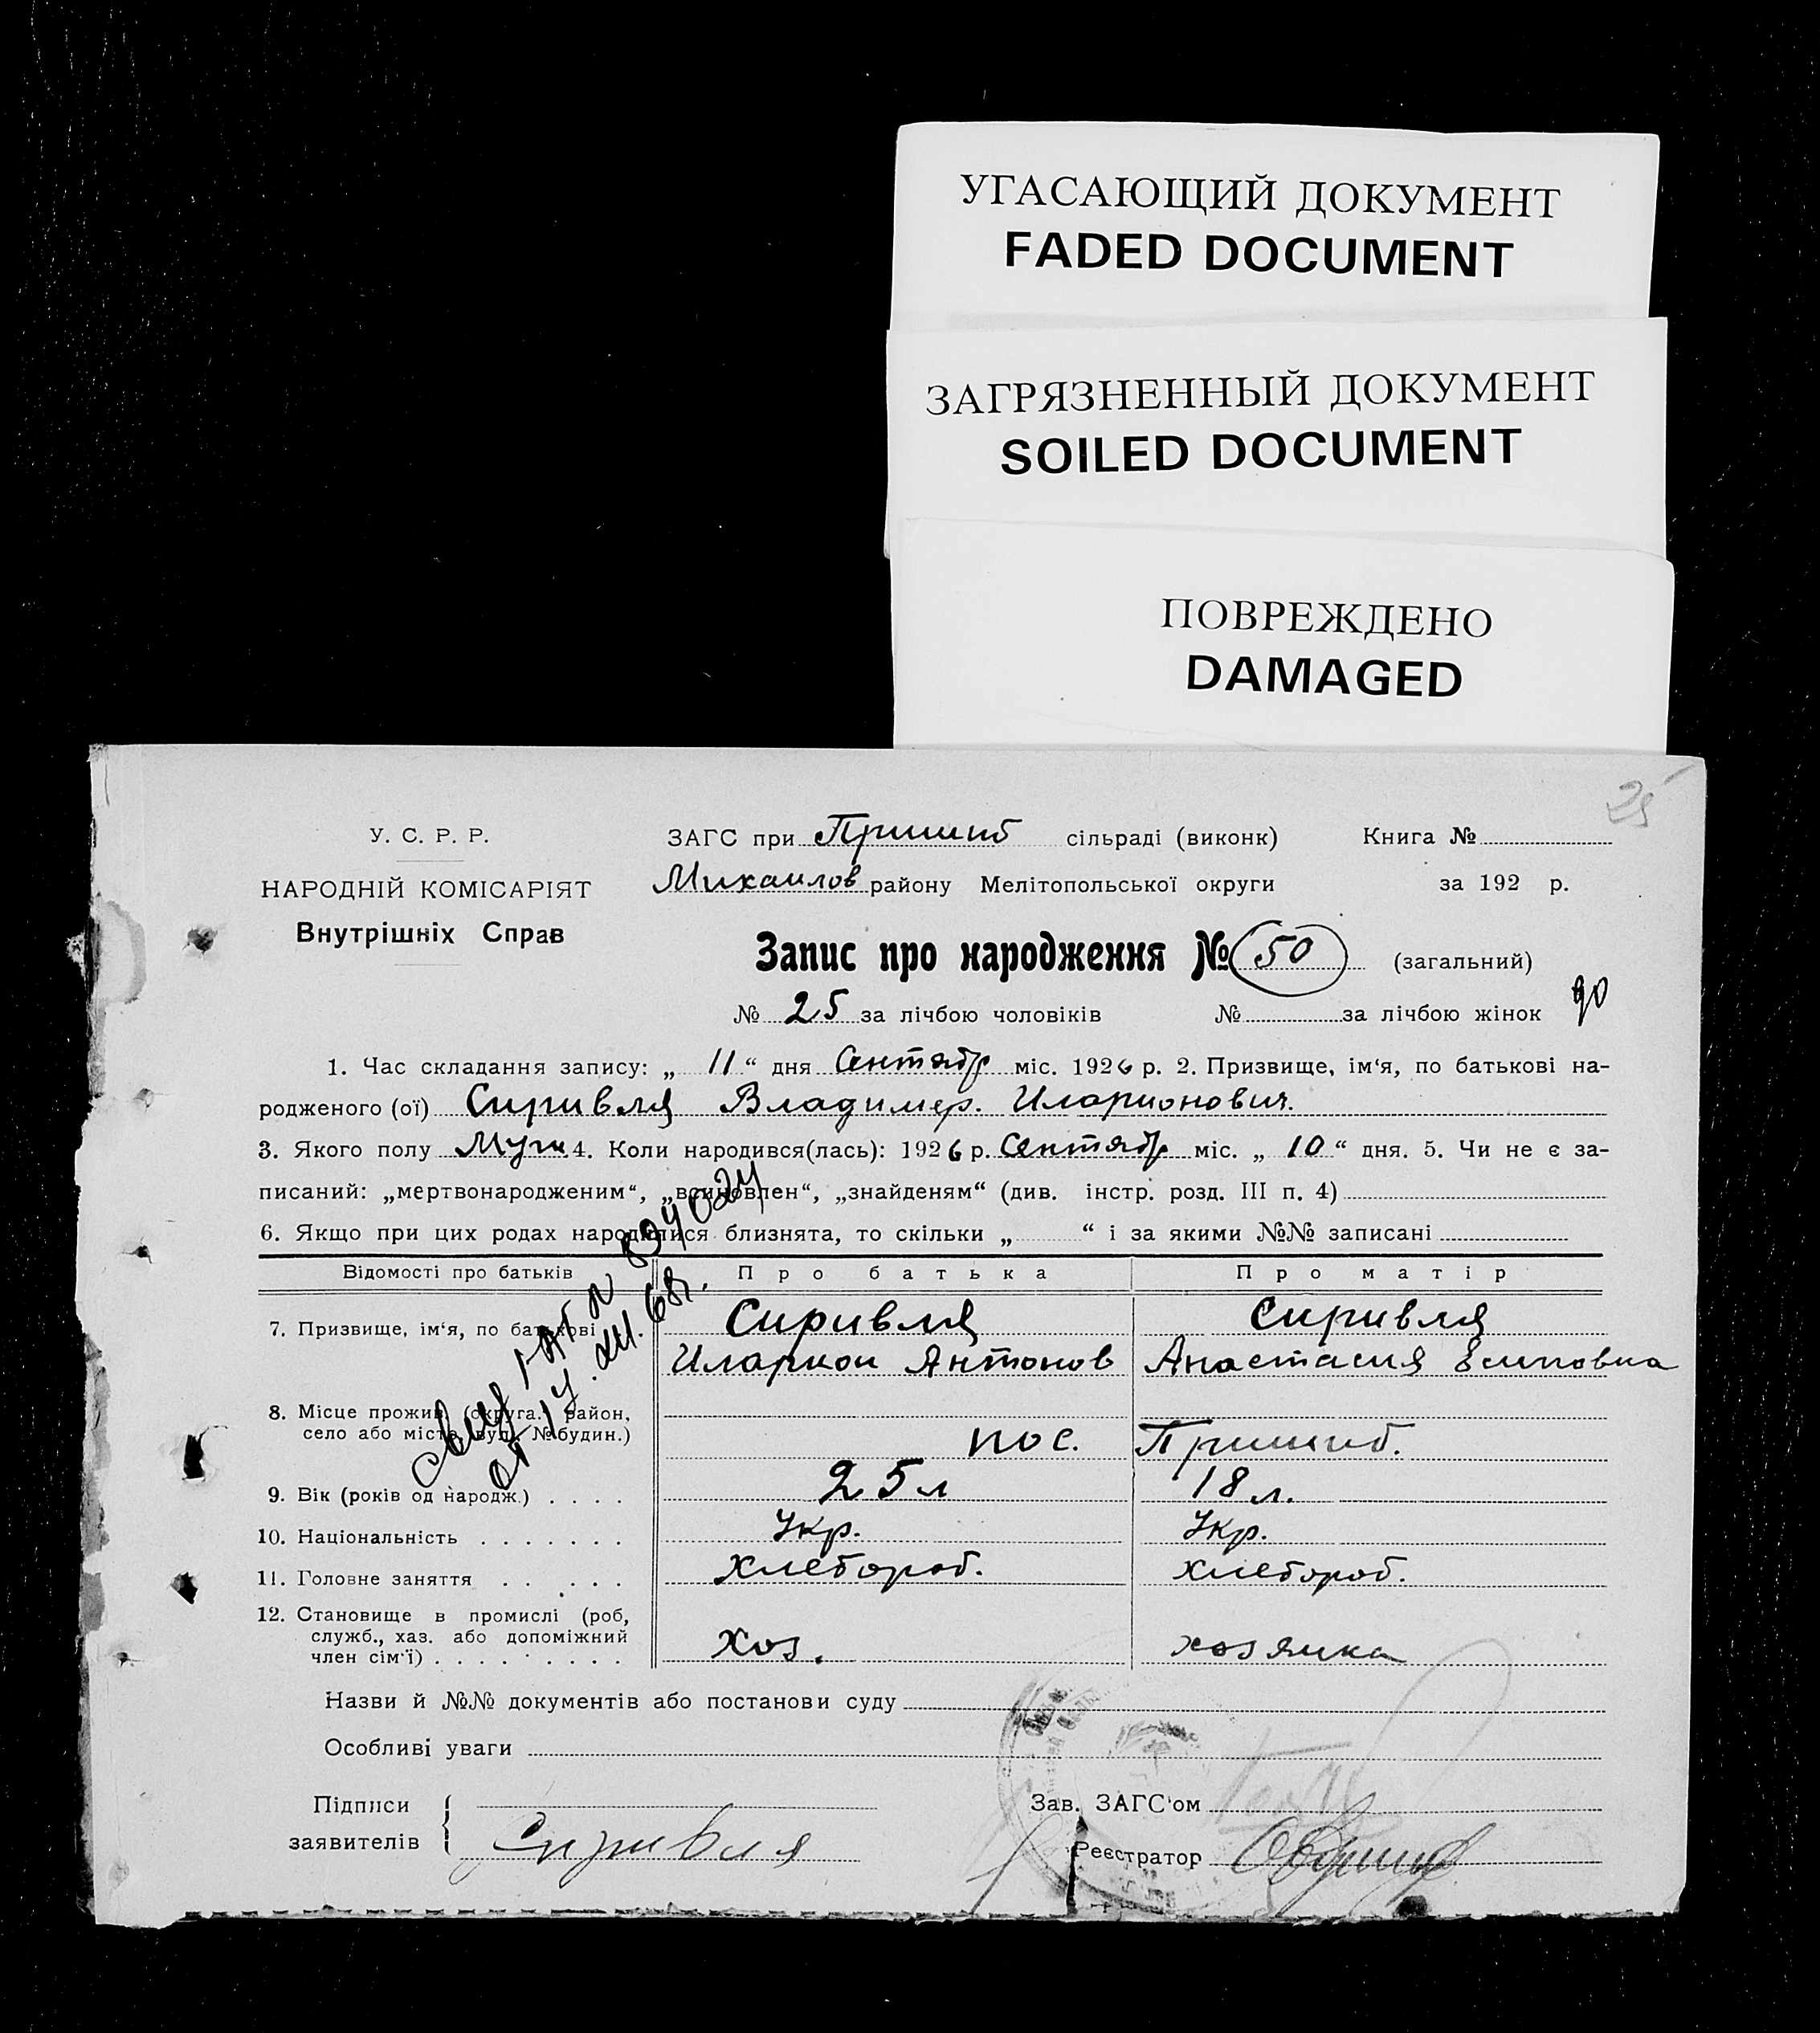 УГАСАЮЩИЙ ДОКУМЕНТ
FADED DOCUMENT
ЗАГРЯЗНЕННЫЙ ДОКУМЕНТ
SOILED DOCUMENT
ПОВРЕЖДЕНО
DAMAGED
25
У. С. Р. Р.
НАРОДНІЙ КОМІСАРІЯТ
Внутрішніх Справ
ЗАГС при Пришиб сільраді (виконк) Книга №
Михайлов району Мелітопольської округи за 192 р.
Запис про народження № 50 (загальний)
№ 25 за лічбою чоловіків № за лічбою жінок
1. Час складання запису: „ 11 “ дня Сентябр міс. 1926 р. 2. Призвище, ім‘я, по батькові на-
родженого (ої) Сиривля Владимер. Иларионович.
3. Якого полу Муж. 4. Коли народився(лась): 1926 р. Сентябр міс. „ 10 “ дня. 5. Чи не є за-
писаний: „мертвонародженим“, „всиновлен“, „знайденям“ (див. інстр. розд. III п. 4)
6. Якщо при цих родах народилися близнята, то скільки „ “ і за якими №№ записані
Відомості про батьків Про батька Про матір
7. Призвище, ім‘я, по батькові Сиривля Сиривля
Иларион Антонов Анастасия Есиповна
8. Місце прожив. (округа. район,
село або місто, вул. № будин.) пос. Пришиб.
9. Вік (років од народж.) 25 л 18 л.
10. Національність Укр. Укр.
11. Головне заняття Хлебороб. Хлебороб.
12. Становище в промислі (роб,
служб., хаз. або допоміжний
член сім‘ї) Хоз. хозяика
Назви й №№ документів або постанови суду
Особливі уваги
Підписи
заявителів Сиривля
Зав. ЗАГС‘ом
Реєстратор